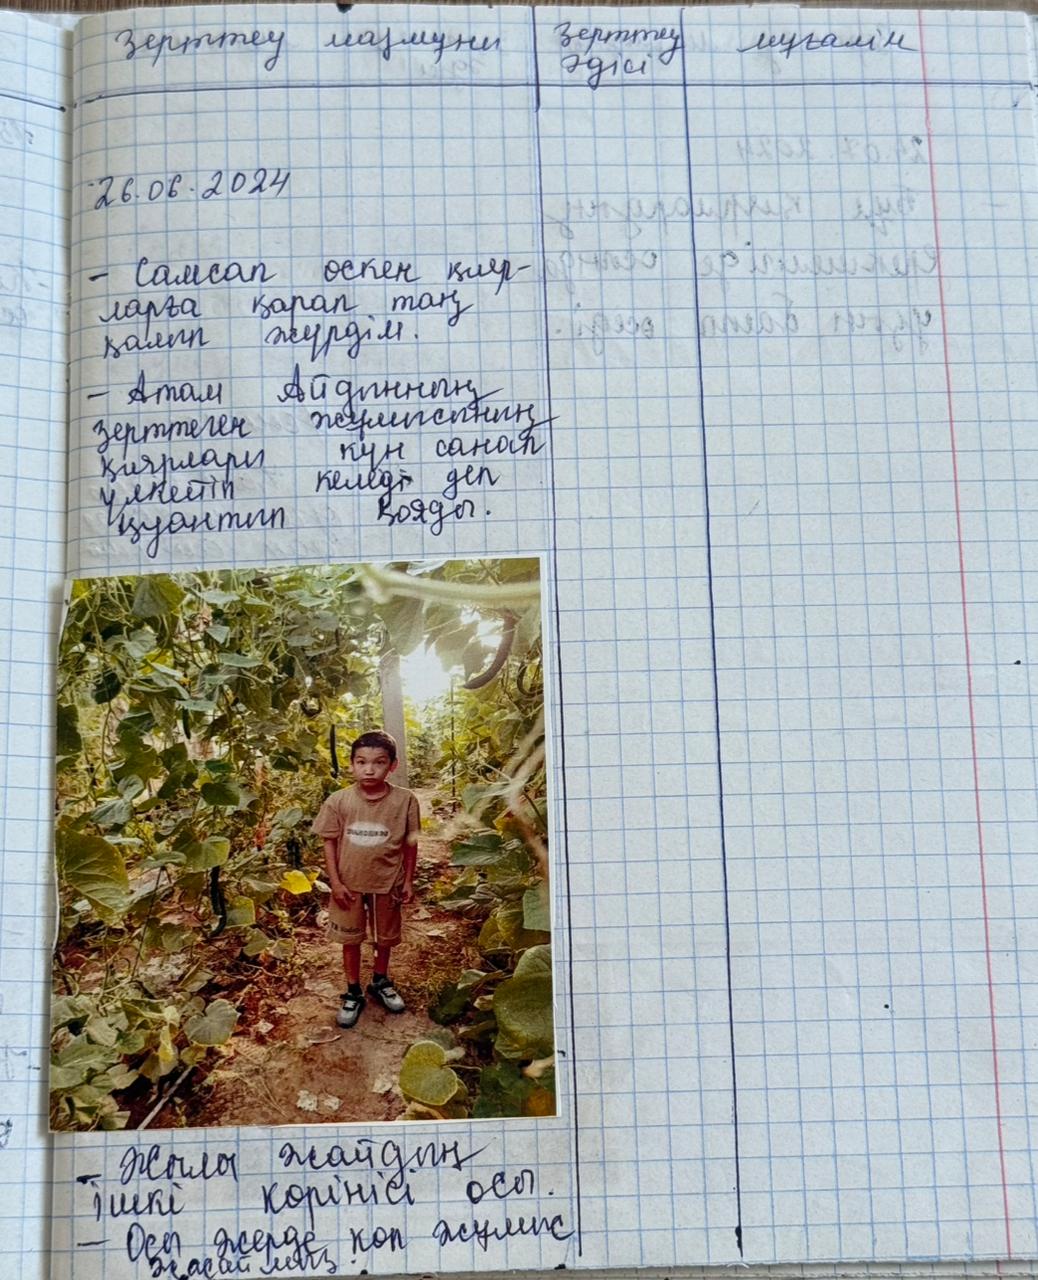 Зерттеу мазмұны
Зерттеу
әдісі
мұғалім
26.06.2024
- Самсап өскен қияр-
ларға қарап таң
қалып жүрдім.
- Атам Айдынның
зерттеген жұмысының
қиярлары күн санап
үлкейіп келеді деп
қуантып қояды.
- Жылы жайдың
ішкі көрінісі осы.
- Осы жерде көп жұмыс
жасаймыз.